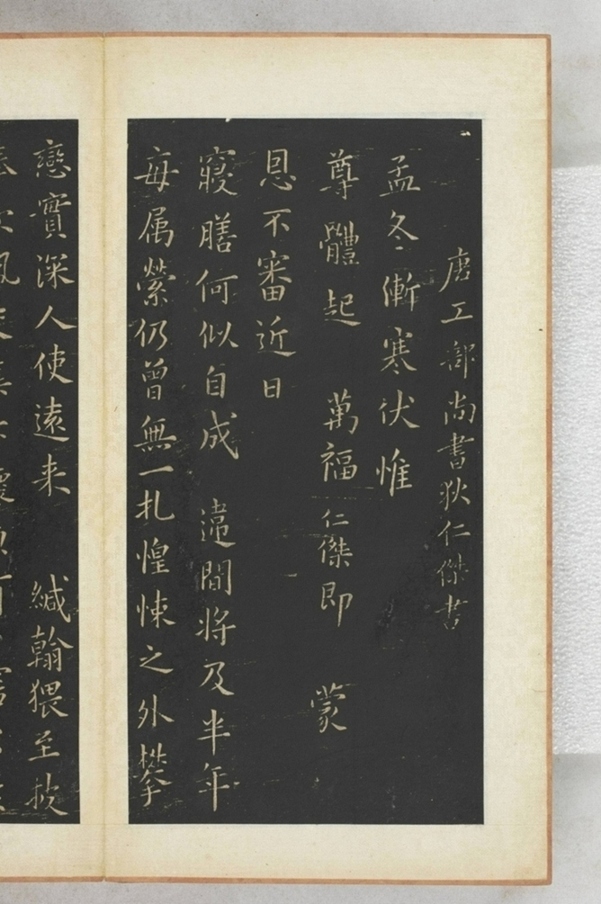 唐工部尚書狄仁傑書
孟冬漸寒伏惟
尊體起 萬福仁傑即 蒙
恩不審近日
寢膳何似自成 違間將及半年
每属縈仍曾無一札惶悚之外攀
戀實深人使遠来 緘翰猥至披